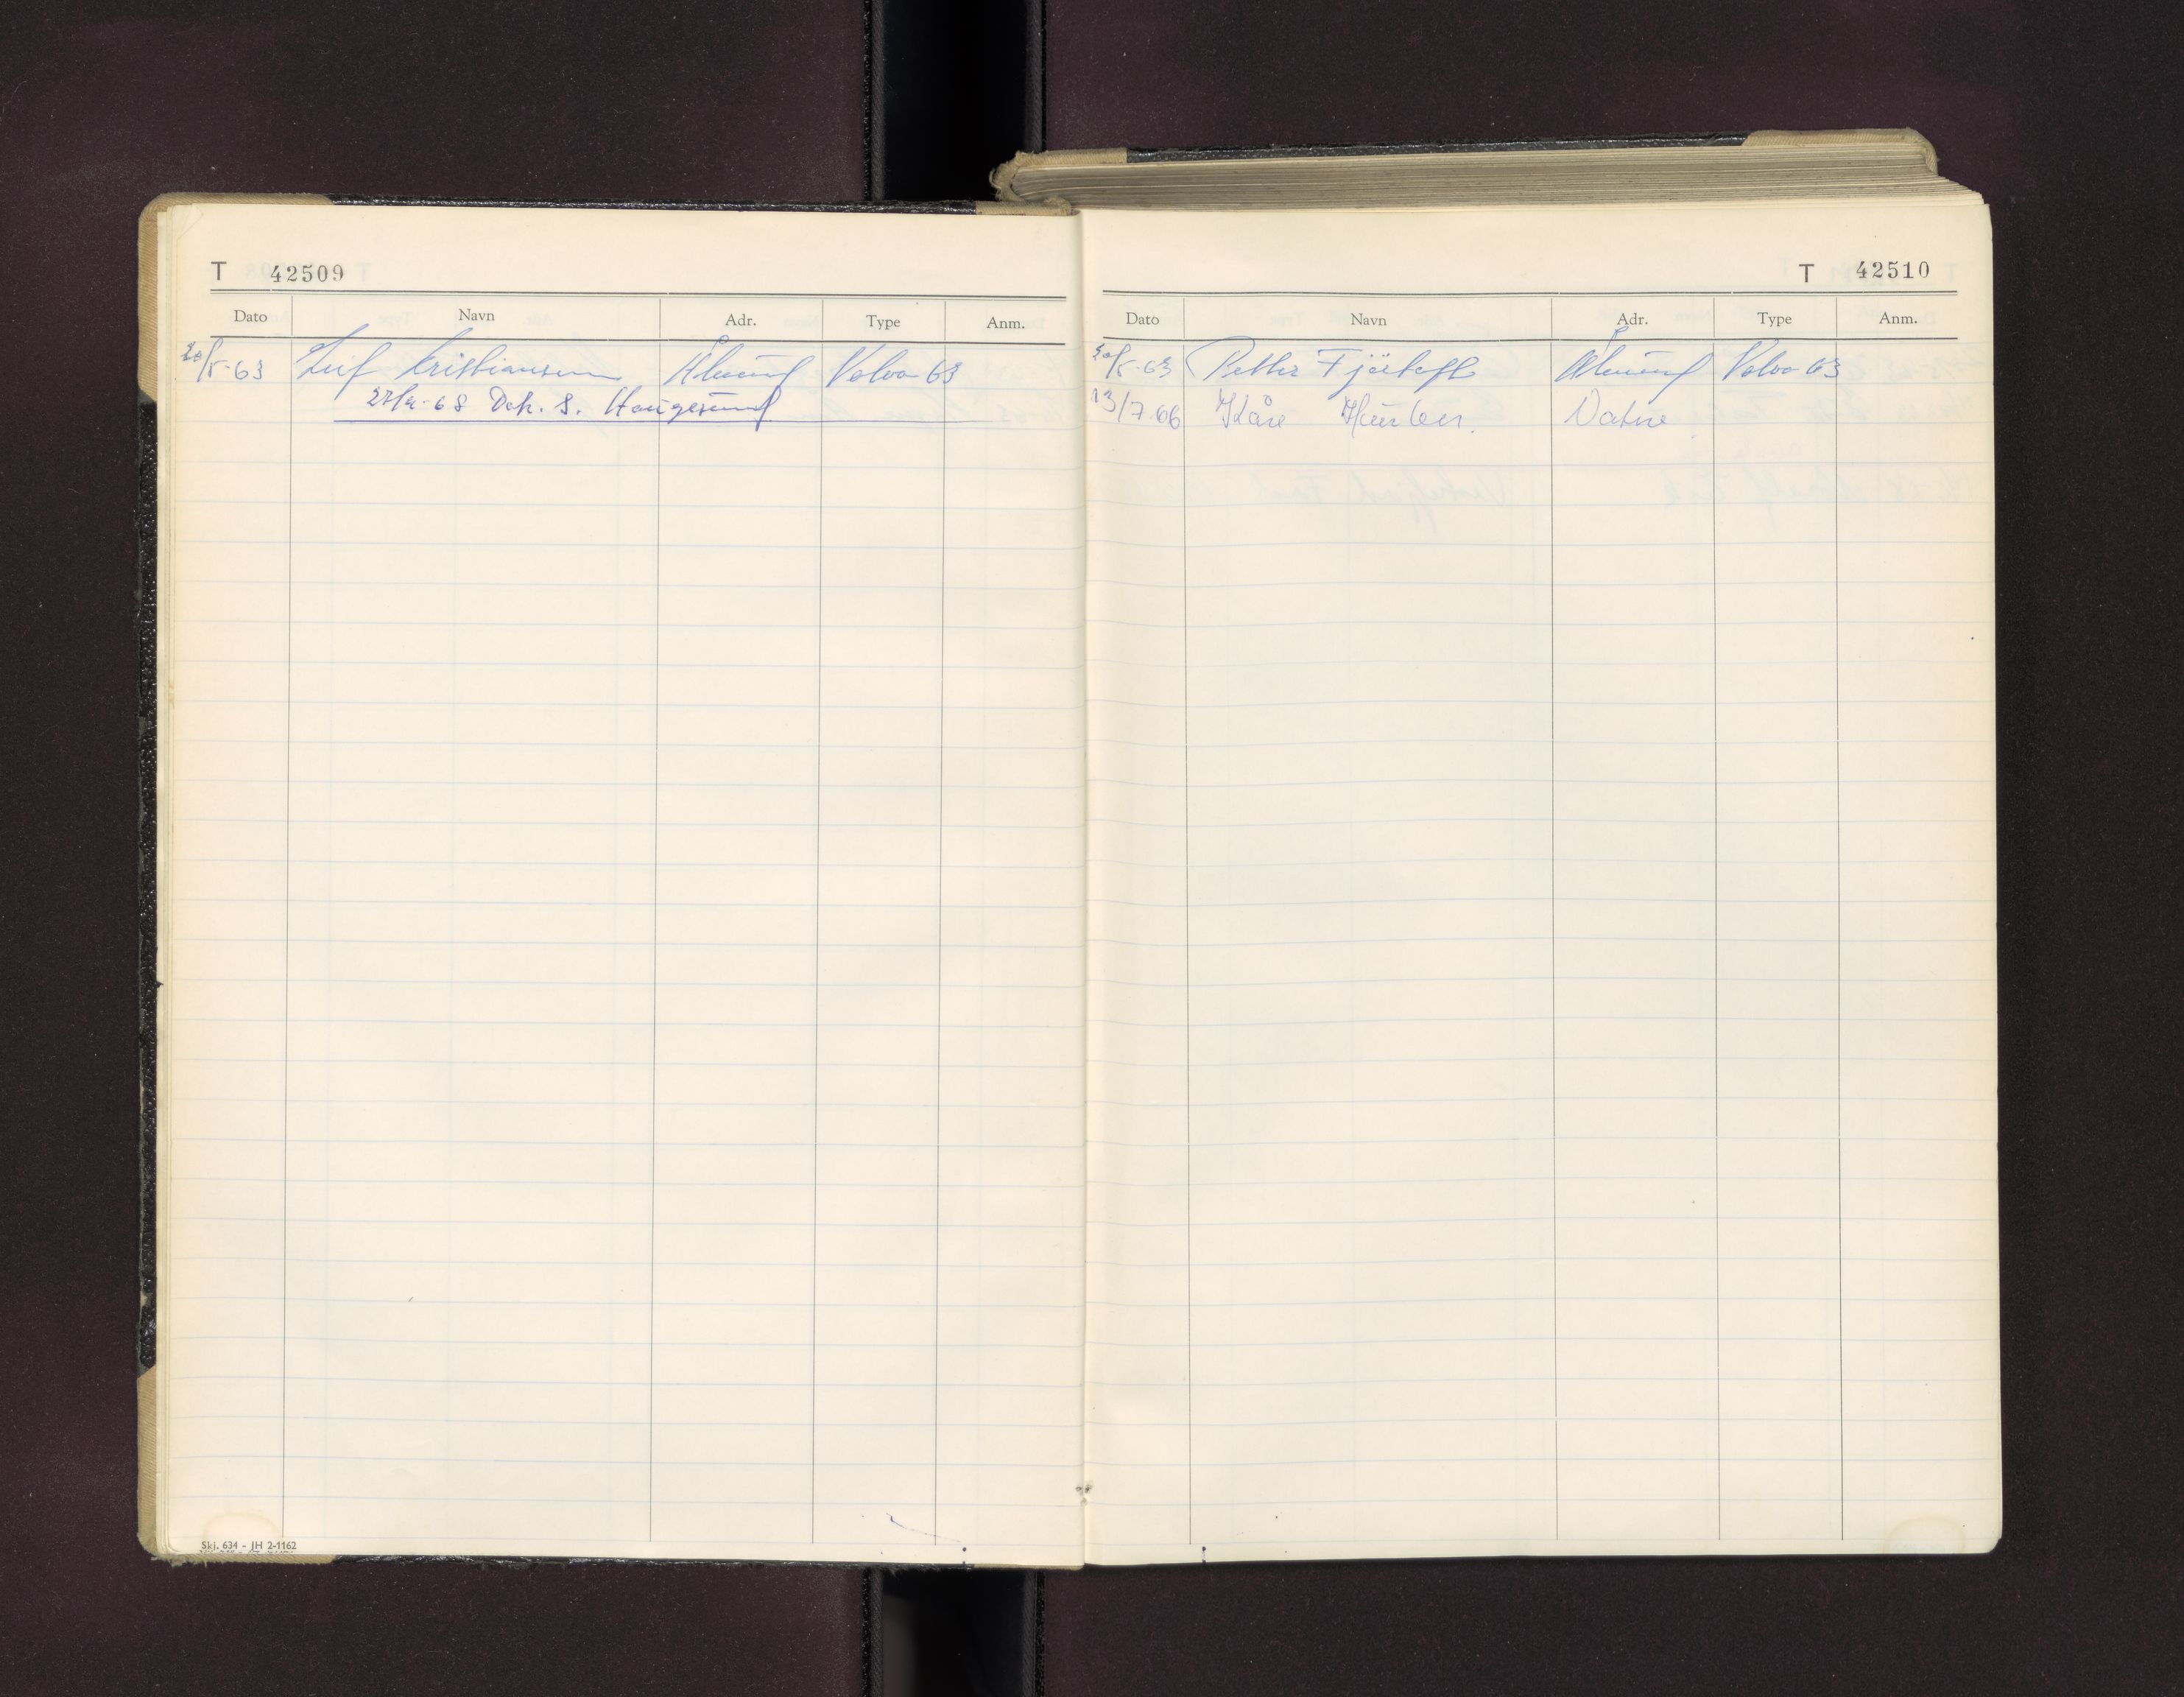 T 42509
Dato Navn Adr. Type Anm.
20/5-63 Leif Kristiansen Ålesund Volvo 63
27/4-68 Dek. S. Haugesund
Skj. 634 - JH 2-1162
T 42510
Dato Navn Adr. Type Anm.
30/5-63 Petter Fjørtoft Ålesund Volvo 63
13/7-66 Kåre Vatne